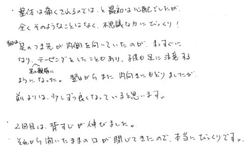 ・整体は痛くされるのでは、と最初は心配でしたが
全くそのようなことはなく、不思議な力にびっくり!
足のつま先が内向を向いていたのが、まっすぐに
なり、テーピングをしたこともあり、子供も足に注意する
ようになった。翌日からまた内向きにもどりましたが
前よりは、少しずつ良くなっていると思います。
・2回目は、背すじが伸びました。
それから開いたままの口が閉じてきたので、本当にびっくりです。